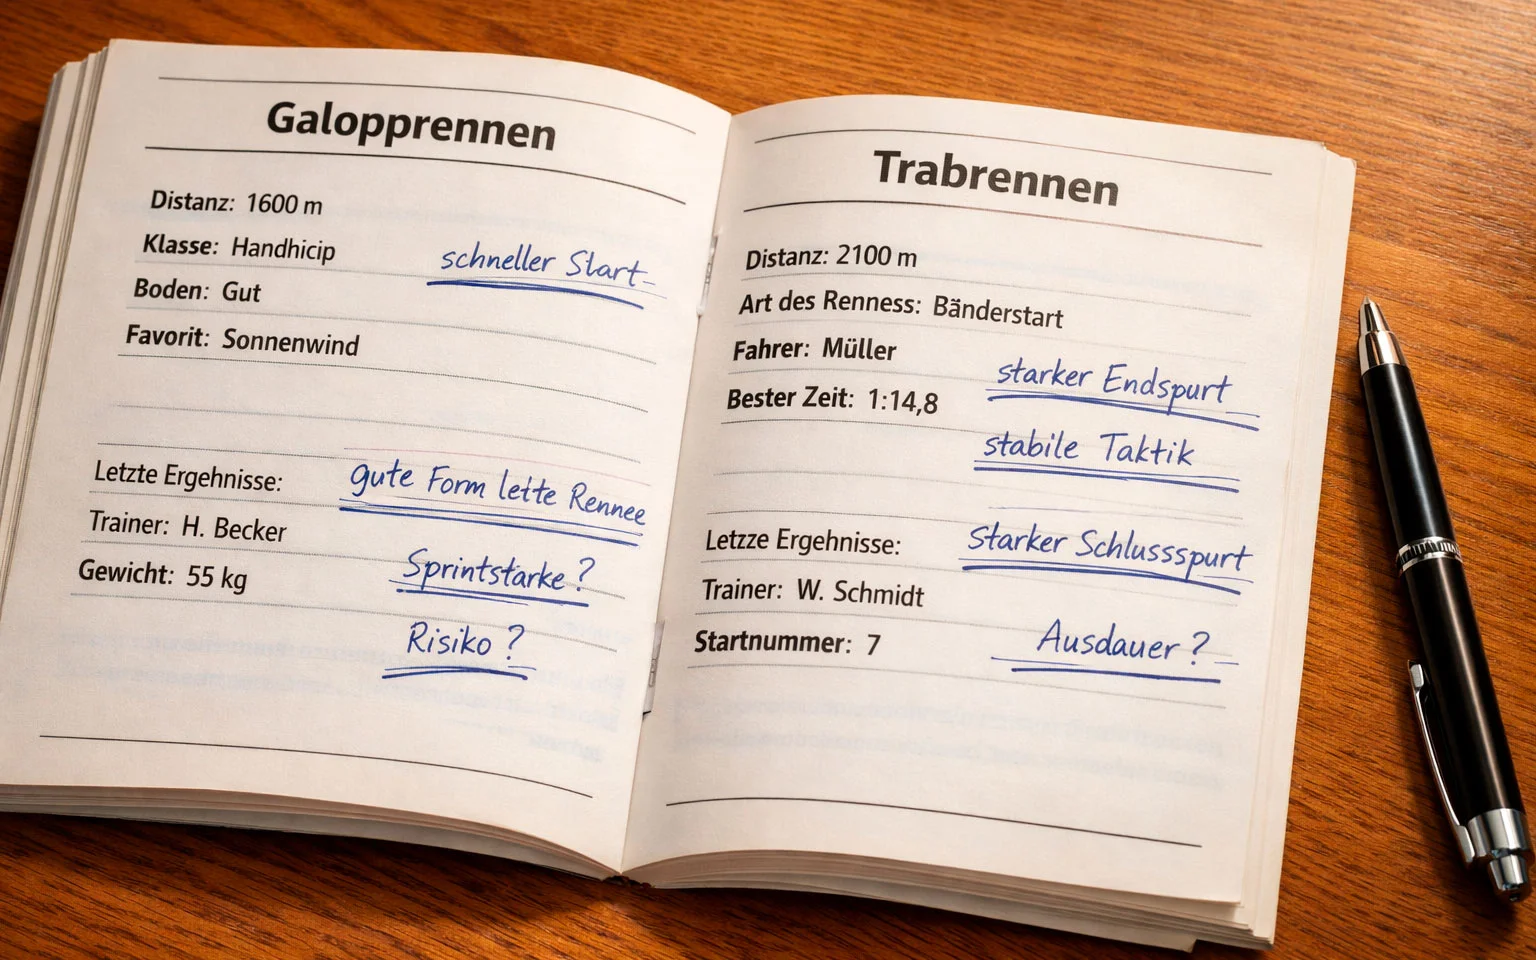 Galopprennen
Distanz: 1600 m
Klasse: Handhicip
schneller Start
Boden: Gut
Favorit: Sonnenwind
Letzte Ergehnisse:
gute Form leite Rennee
Trainer: H. Becker
Sprintstarke?
Gewicht: 55 kg
Risiko?
Trabrennen
Distanz: 2100 m
Art des Renness: Bänderstart
Fahrer: Müller
starker Endspurt
Bester Zeit: 1:14,8
stabile Taktik
Letzze Ergehnisse:
Starker Schlussspurt
Trainer: W. Schmidt
Startnummer: 7
Ausdauer?